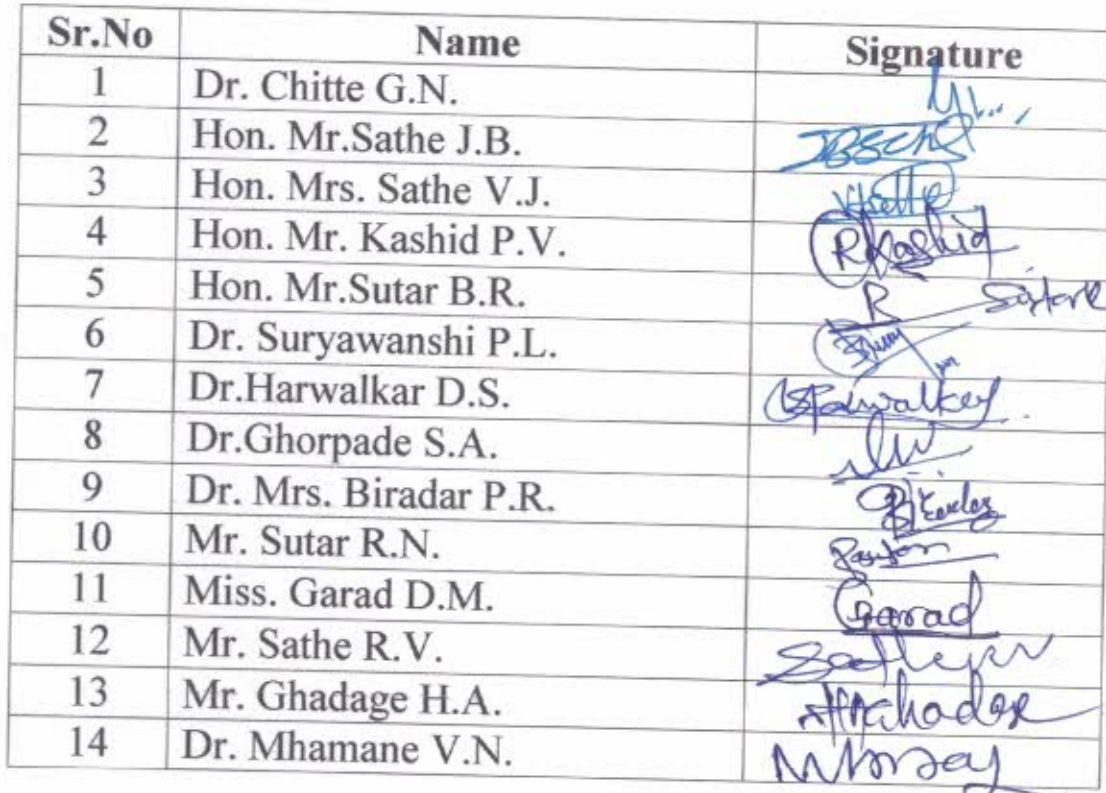 Sr.No Name Signature
1 Dr. Chitte G.N.
2 Hon. Mr.Sathe J.B.
3 Hon. Mrs. Sathe V.J.
4 Hon. Mr. Kashid P.V. RKashid
5 Hon. Mr.Sutar B.R.
6 Dr. Suryawanshi P.L.
7 Dr.Harwalkar D.S.
8 Dr.Ghorpade S.A.
9 Dr. Mrs. Biradar P.R.
10 Mr. Sutar R.N.
11 Miss. Garad D.M. Garad
12 Mr. Sathe R.V.
13 Mr. Ghadage H.A.
14 Dr. Mhamane V.N.